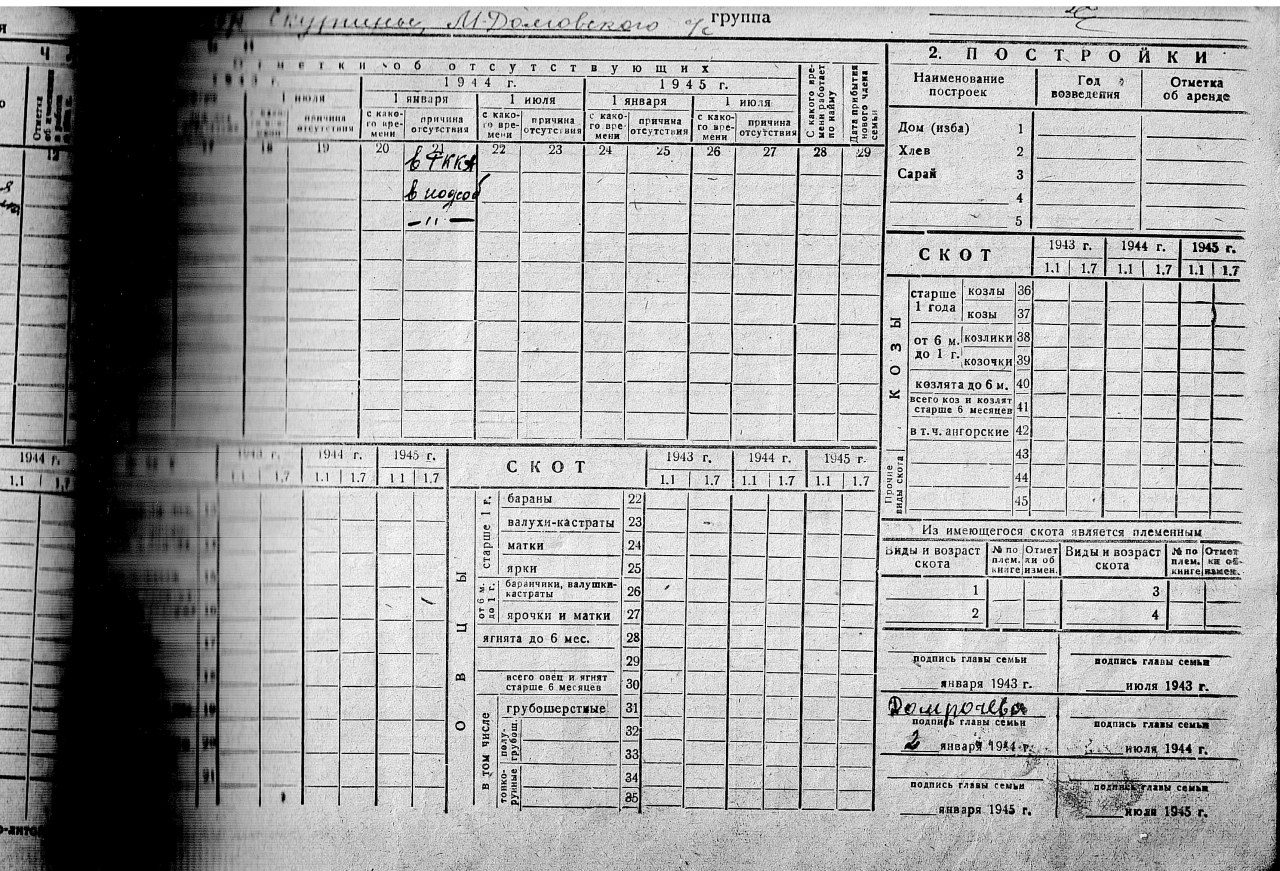 Скутинье, М-Долговского с/с группа
Отметки об отсутствующих
1944 г. 1945 г.
1 июля 1 января 1 июля 1 января 1 июля
причина отсутствия
с како-го вре-мени причина отсутствия с како-го вре-мени причина отсутствия с како-го вре-мени причина отсутствия с како-го вре-мени причина отсутствия
С какого вре-мени работает по найму
Дата прибытия нового члена семьи
18 19 20 21 22 23 24 25 26 27 28 29
в РККА
в подсоб
— 11 —
2. ПОСТРОЙКИ
Наименование построек Год возведения Отметка об аренде
Дом (изба) 1
Хлев 2
Сарай 3
4
5
СКОТ 1943 г. 1944 г. 1945 г.
1.1 1.7 1.1 1.7 1.1 1.7
КОЗЫ
старше 1 года козлы 36
козы 37
от 6 м. до 1 г. козлики 38
козочки 39
козлята до 6 м. 40
всего коз и козлят старше 6 месяцев 41
в т. ч. ангорские 42
Прочие виды скота 43
44
45
1944 г. 1943 г. 1944 г. 1945 г.
1.1 1.7 1.7 1.1 1.7 1.1 1.7
СКОТ 1943 г. 1944 г. 1945 г.
1.1 1.7 1.1 1.7 1.1 1.7
ОВЦЫ
старше 1 г. бараны 22
валухи-кастраты 23
матки 24
ярки 25
от 6 м. до 1 г. баранчики, валушки-кастраты 26
ярочки и матки 27
ягнята до 6 мес. 28
29
всего овец и ягнят старше 6 месяцев 30
в том числе
грубошерстные 31
полу-грубош. 32
33
тонко-рунные 34
35
Из имеющегося скота является племенным
Виды и возраст скота № по плем. книге Отмет ки об измен. Виды и возраст скота № по плем. книге Отмет ки об измен.
1 3
2 4
подпись главы семьи подпись главы семьи
января 1943 г. июля 1943 г.
Домрачева
подпись главы семьи подпись главы семьи
2 января 1944 г. июля 1944 г.
подпись главы семьи подпись главы семьи
января 1945 г. июля 1945 г.